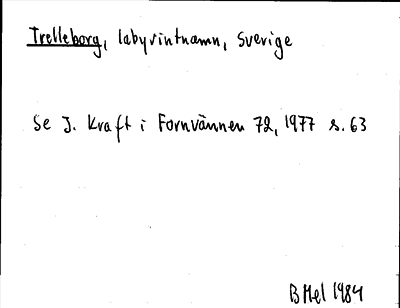 Trelleborg, labyrintnamn, Sverige
Se J. Kraft i Fornvännen 72, 1977 s. 63
B Hel 1984